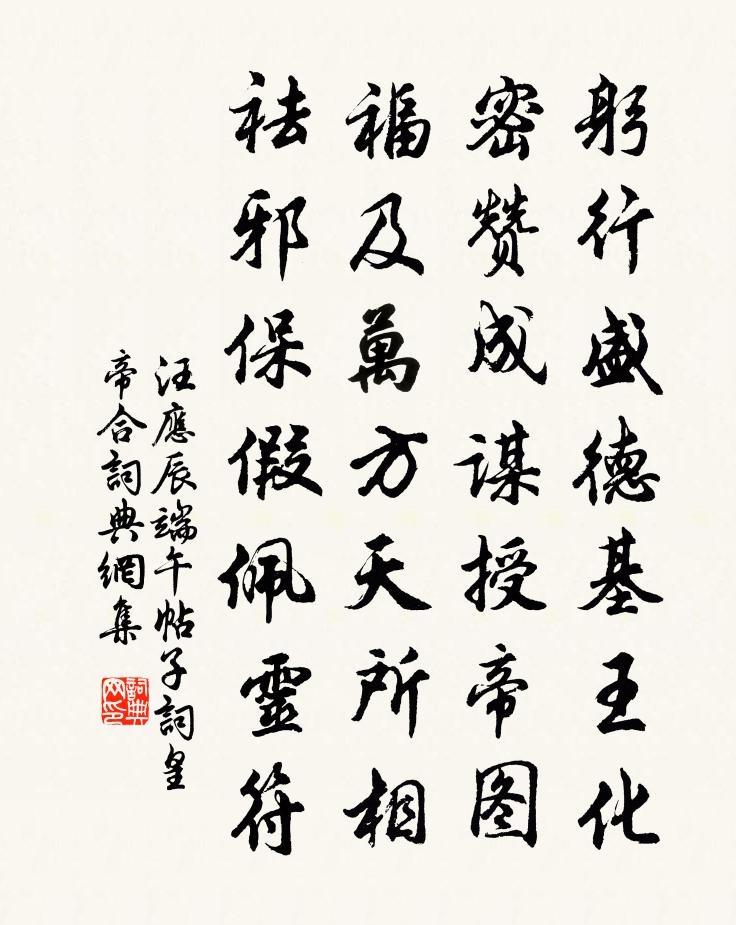 躬行盛德基王化
密贊成謀授帝图
福及萬方天所相
祛邪保假佩靈符
汪應辰端午帖子詞皇
帝合詞典網集
詞典网印